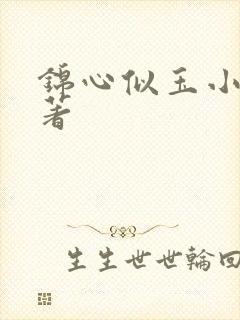 錦心似玉小
著
生生世世輪回